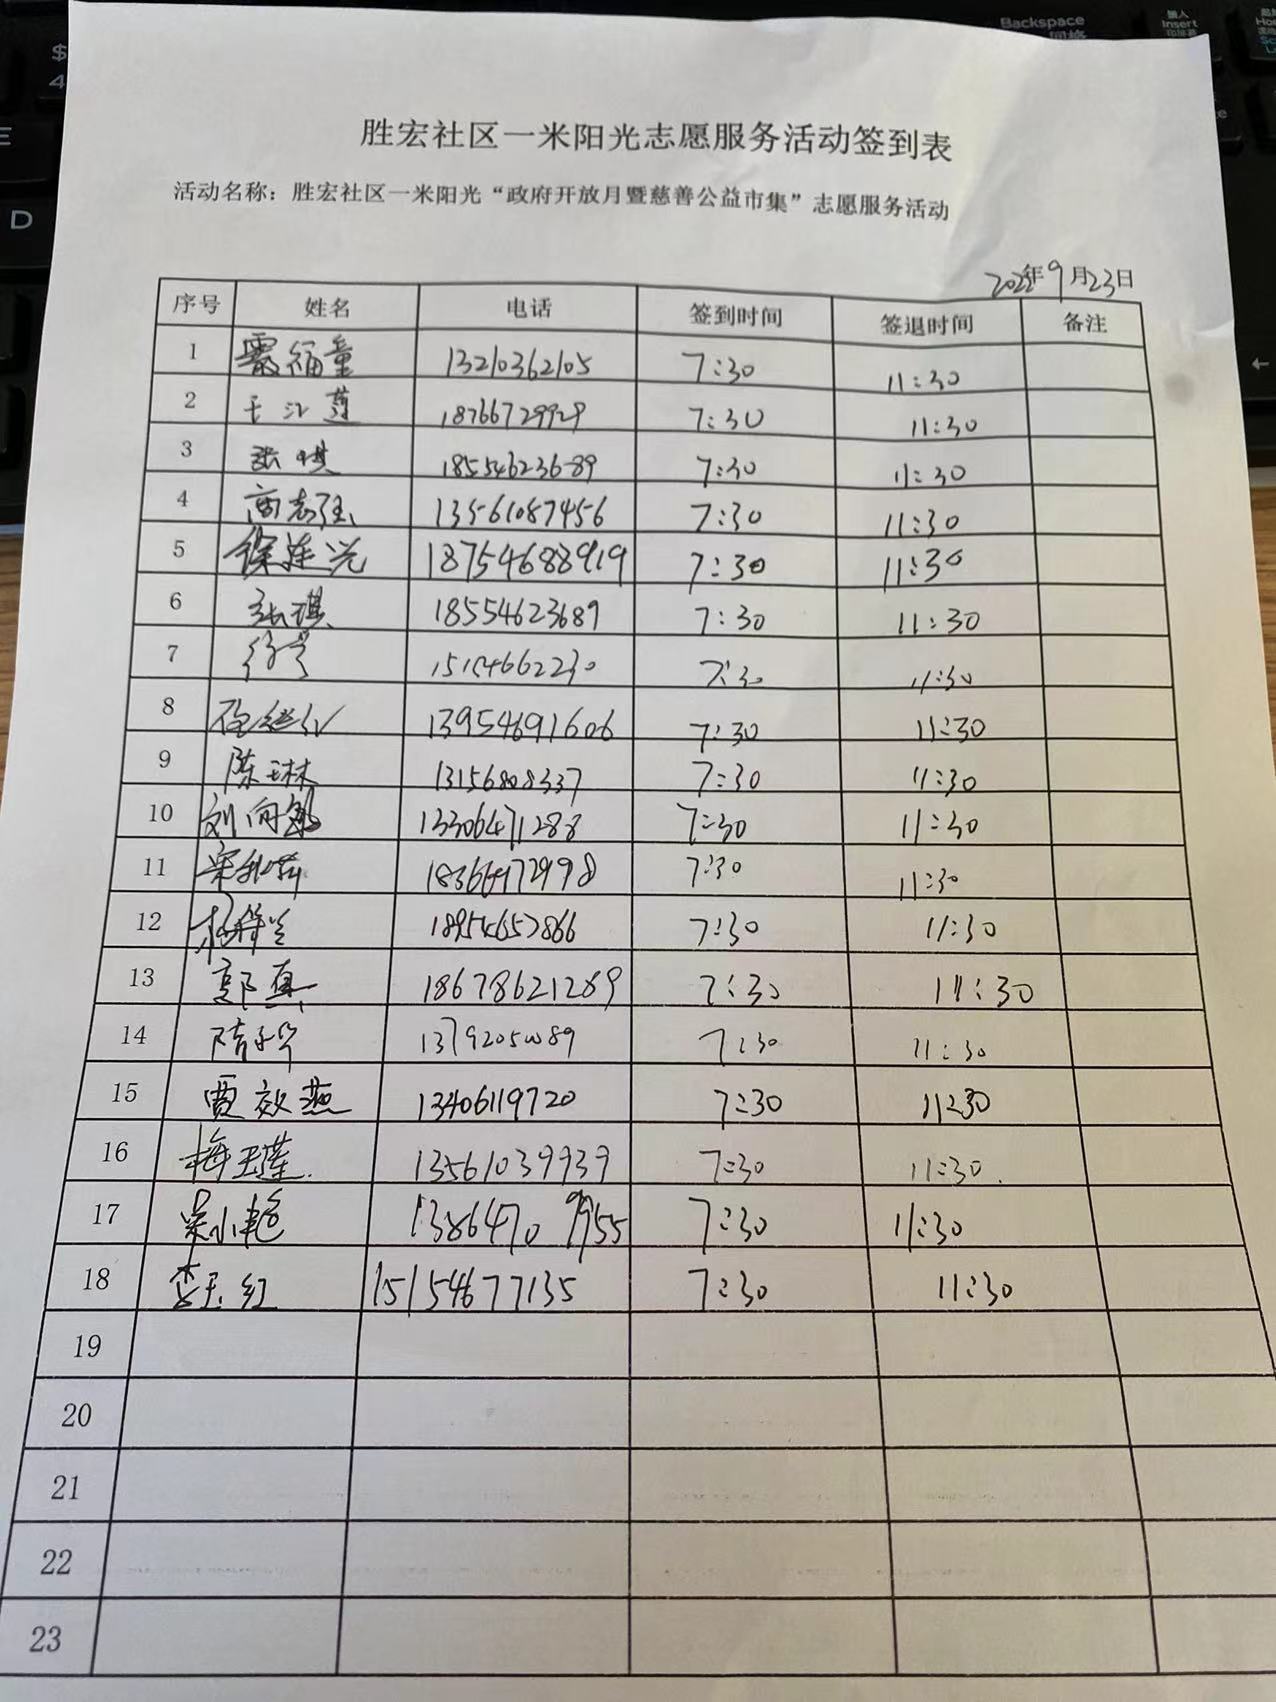 胜宏社区一米阳光志愿服务活动签到表
活动名称：胜宏社区一米阳光“政府开放月暨慈善公益市集”志愿服务活动
2022年9月23日
序号 姓名 电话 签到时间 签退时间 备注
1 福童 13210362105 7:30 11:30
2 王江莲 18766729929 7:30 11:30
3 张琪 18554623689 7:30 11:30
4 商志强 13561087456 7:30 11:30
5 徐连兴 18754688919 7:30 11:30
6 张琪 18554623689 7:30 11:30
7 7:30 11:30
8 13954691606 7:30 11:30
9 陈玉琳 13156808337 7:30 11:30
10 刘向敏 13306471288 7:30 11:30
11 7:30 11:30
12 7:30 11:30
13 郭真 18678621289 7:30 11:30
14 7:30 11:30
15 贾效燕 13406119720 7:30 11:30
16 梅玉莲 13561039939 7:30 11:30
17 吴小艳 13864709955 7:30 11:30
18 李玉红 15154677135 7:30 11:30
19
20
21
22
23
Backspace
Insert
$
4
E
D